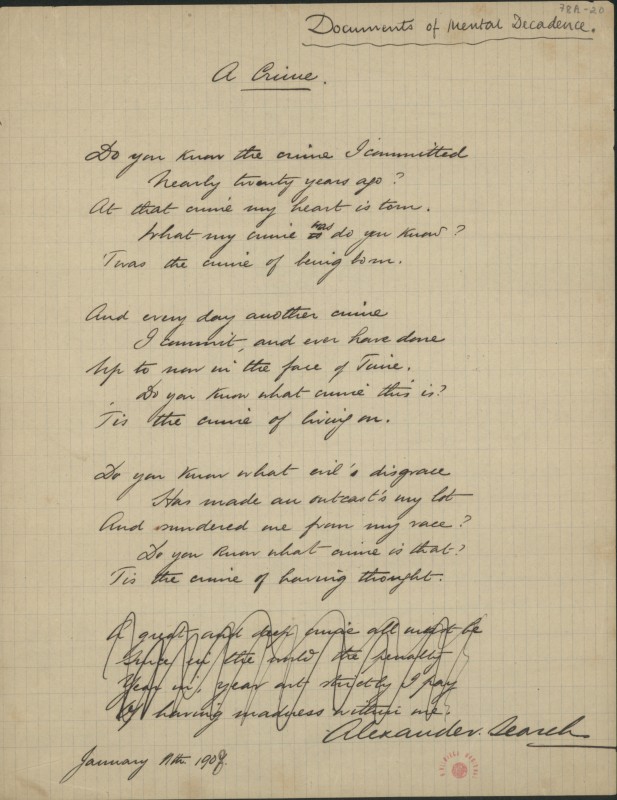 78A-20
Documents of Mental Decadence.
A Crime.
Do you know the crime I committed
Nearly twenty years ago?
At that crime my heart is torn.
What my crime was do you know?
'Twas the crime of being born.
And every day another crime
I commit, and ever have done
Up to now in the face of Time.
Do you know what crime this is?
'Tis the crime of living on.
Do you know what evil's disgrace
Has made an outcast's my lot
And sundered me from my race?
Do you know what crime is that?
'Tis the crime of having thought.
A great and deep crime all must be
Since in the world the penalty
Year in, year out strictly I pay
Of having madness within me.
Alexander Search
January 1908.